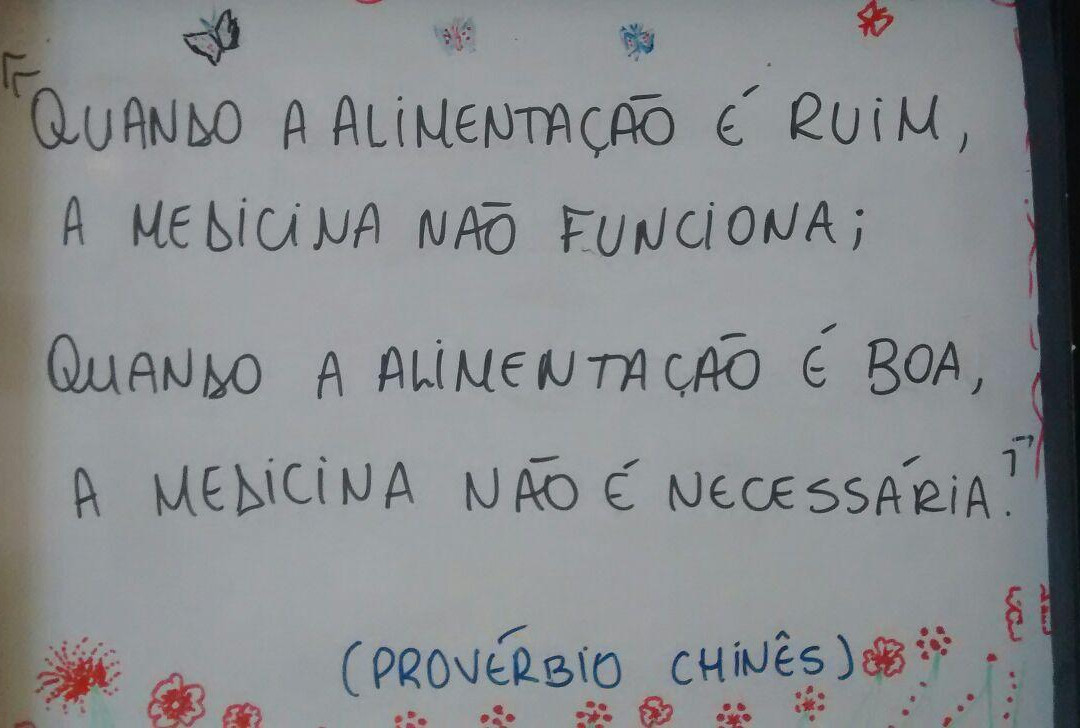 "QUANDO A ALIMENTAÇÃO É RUIM,
A MEDICINA NÃO FUNCIONA;
QUANDO A ALIMENTAÇÃO É BOA,
A MEDICINA NÃO É NECESSÁRIA."
(PROVÉRBIO CHINÊS)